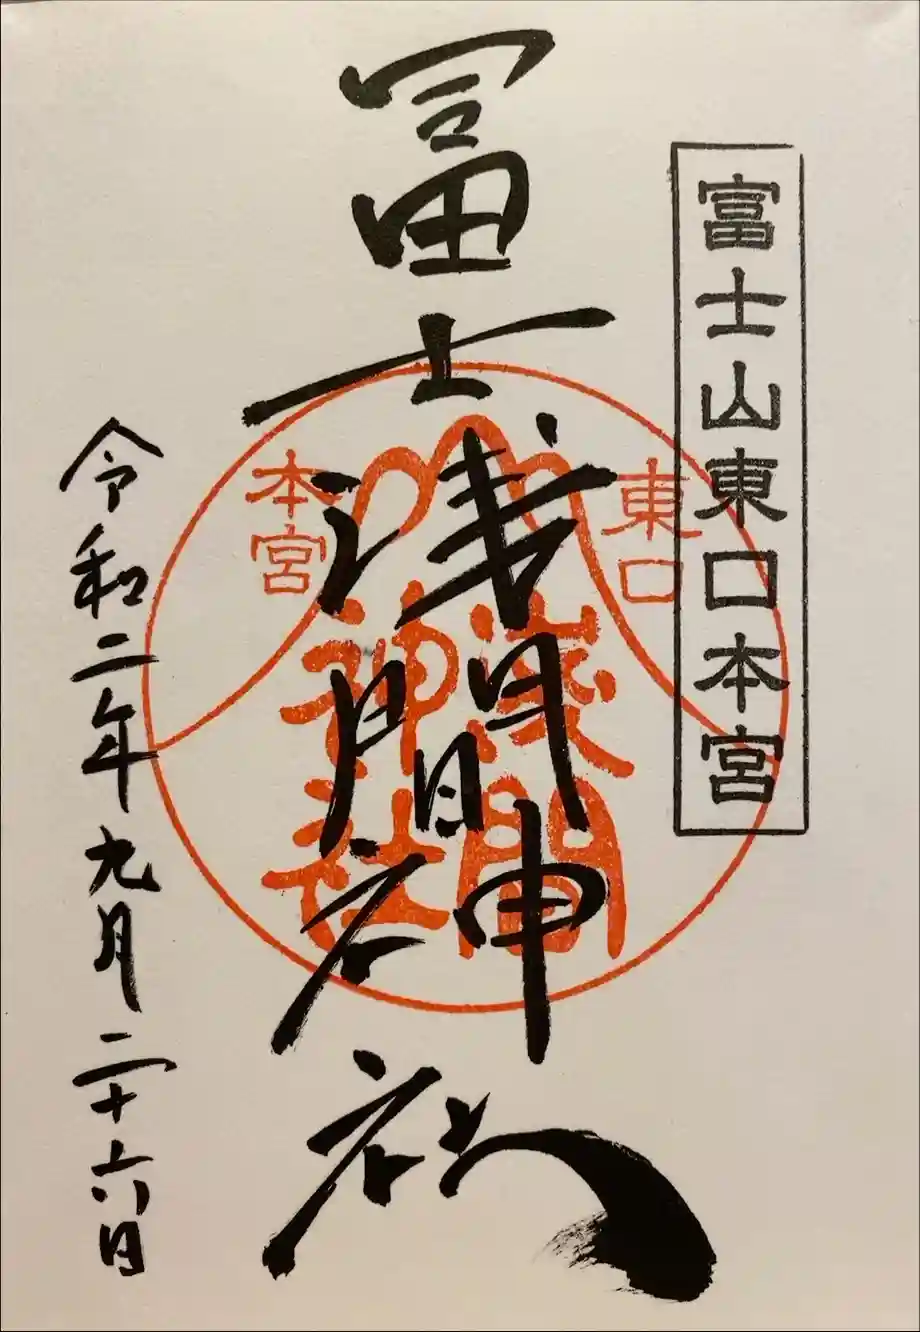 富士山東口本宮
冨士浅間神社
東口
本宮
浅間
神社
令和二年九月二十六日